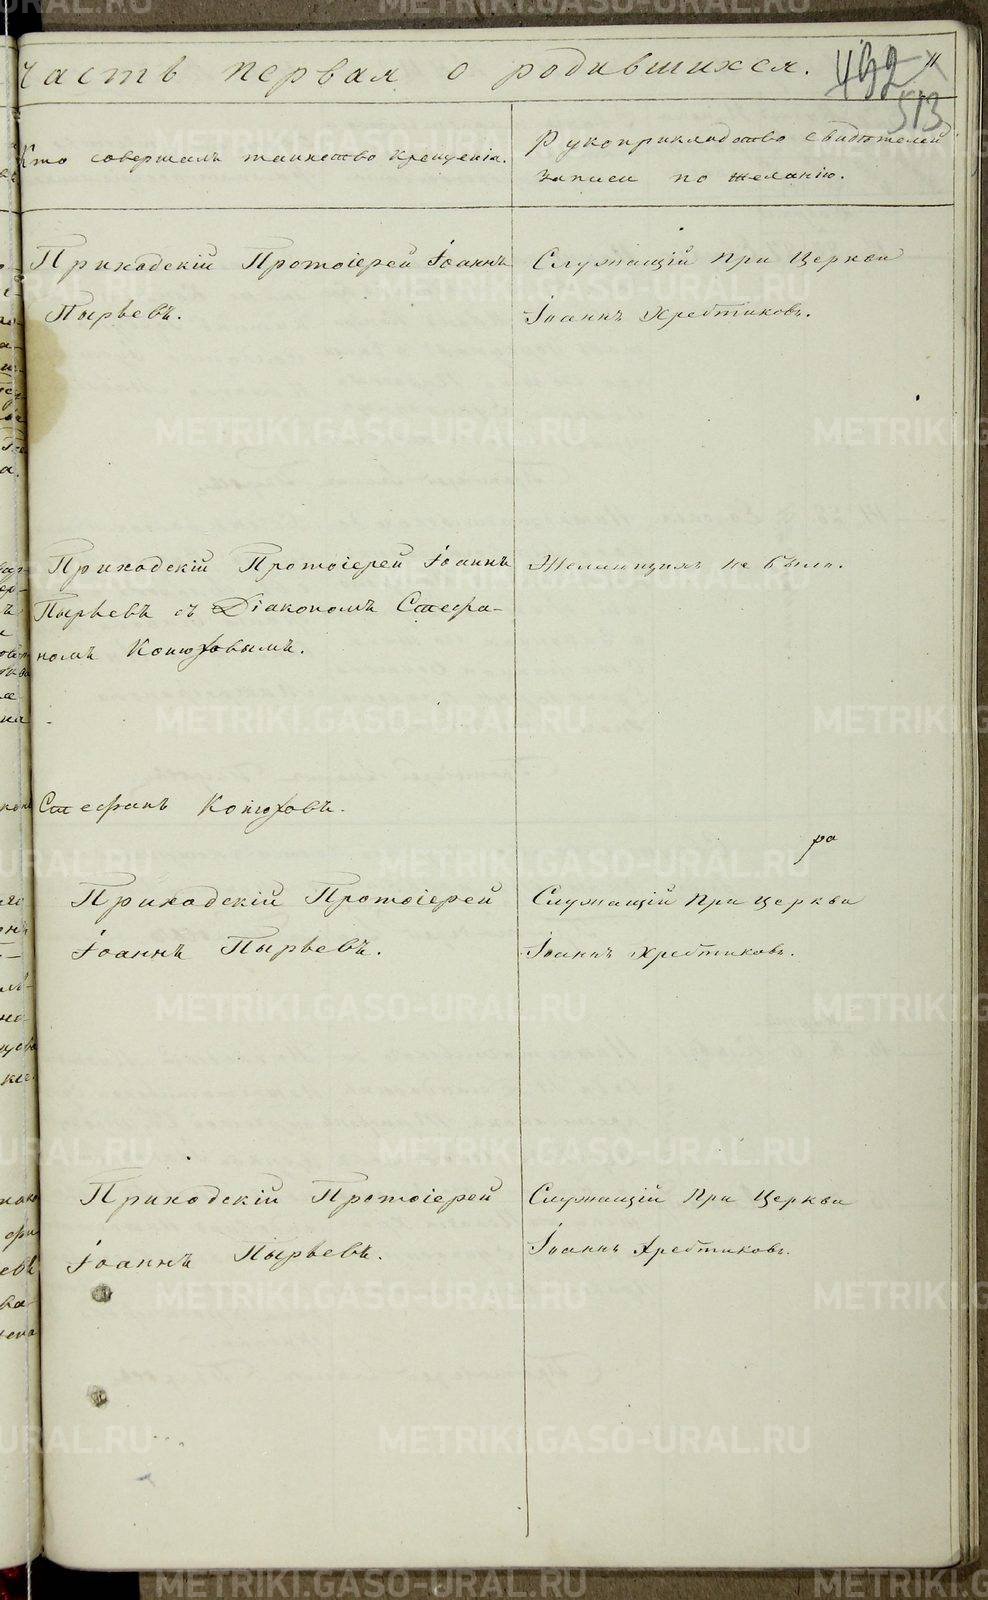 Часть первая о родившихся.
492
513
Кто совершалъ таинство крещенія.
Рукоприкладство свидѣтелей
записи по желанію.
Приходскій Протоіерей Іоаннъ
Пырьевъ.
Служащій при Церкви
Іоаннъ Хребтиковъ.
Приходскій Протоіерей Іоаннъ
Пырьевъ съ Діакономъ Стефа-
номъ Конюховымъ.
Желающихъ не было.
Стефанъ Конюховъ.
ра
Приходскій Протоіерей
Іоаннъ Пырьевъ.
Служащій при Церкви
Іоаннъ Хребтиковъ.
Приходскій Протоіерей
Іоаннъ Пырьевъ.
Служащій при Церкви
Іоаннъ Хребтиковъ.
METRIKI.GASO-URAL.RU